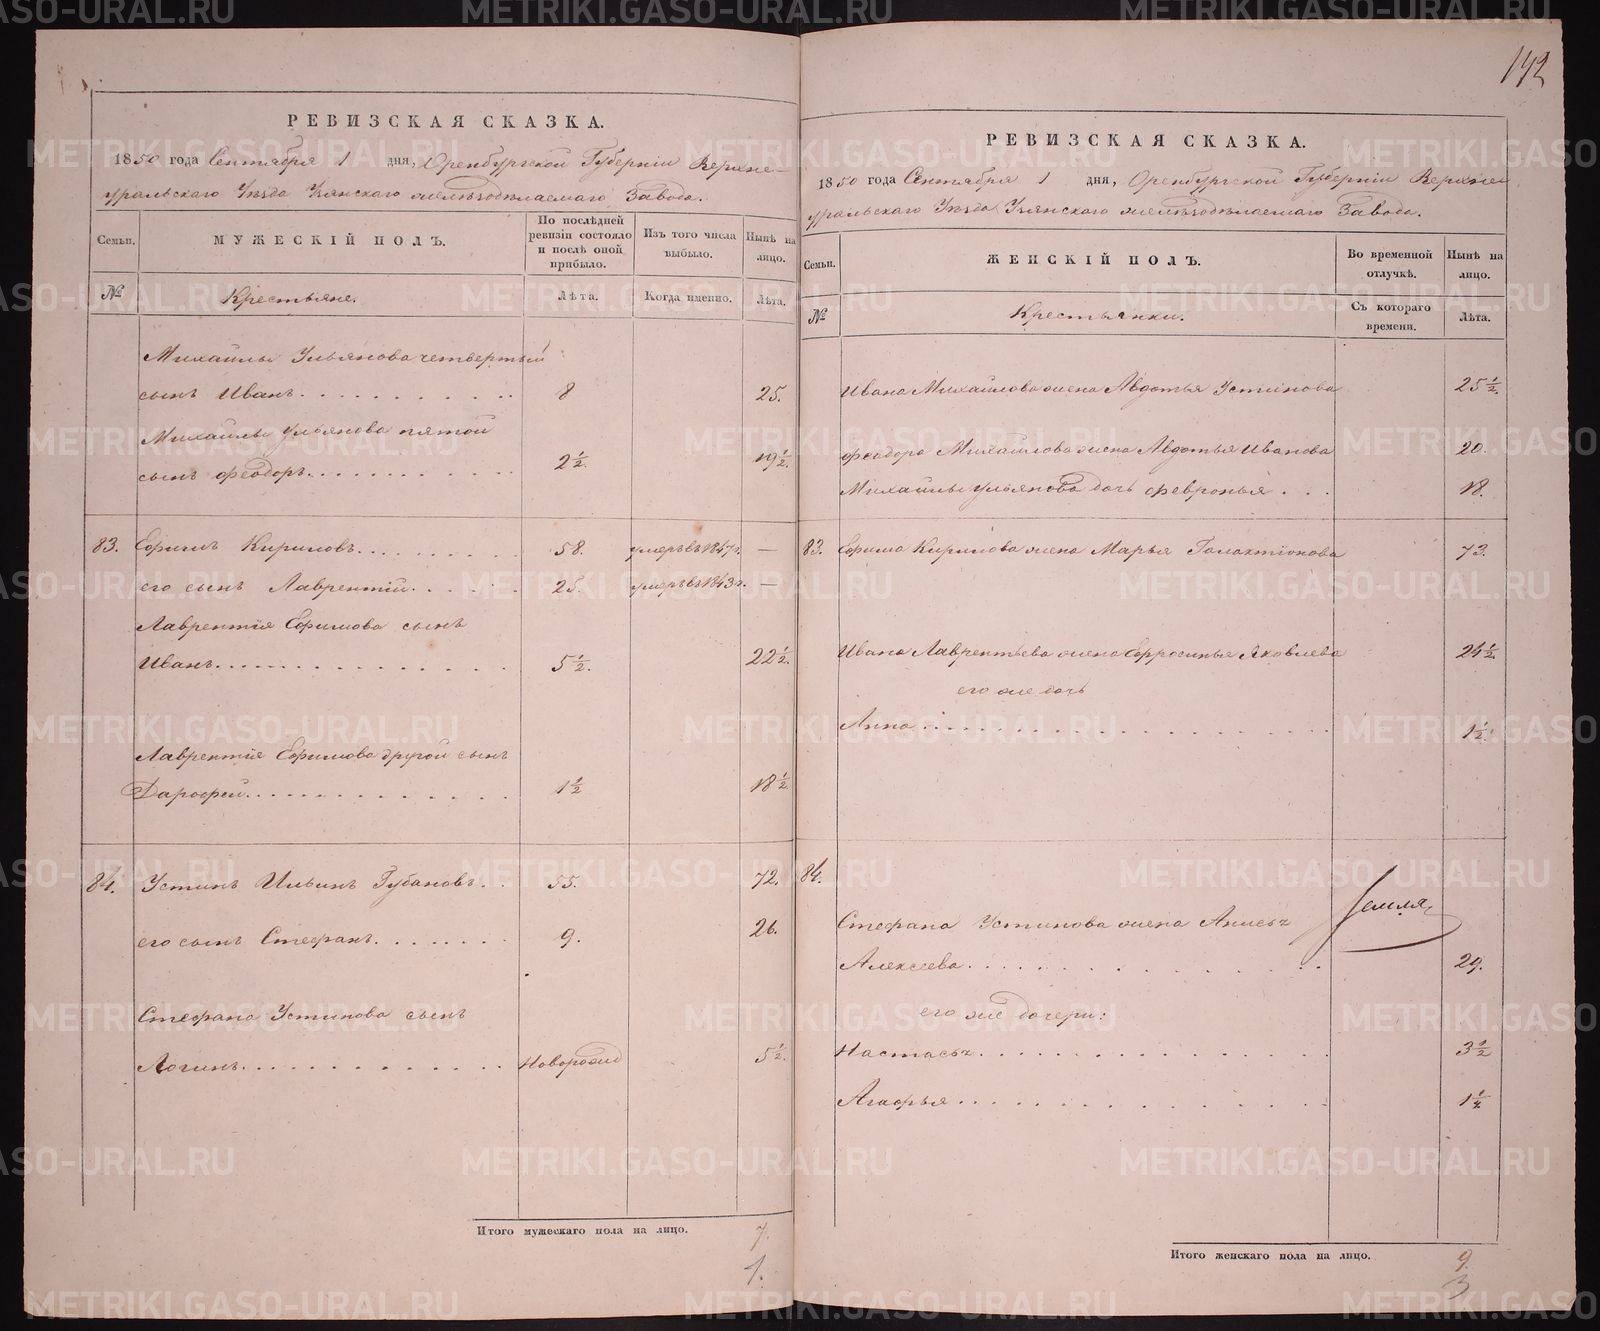 142
РЕВИЗСКАЯ СКАЗКА.
1850 года Сентября 1 дня, Оренбургской Губернiи Верхне-
уральскаго Уѣзда Узянскаго желѣзодѣлаемаго Завода.
Семьи.
МУЖЕСКIЙ ПОЛЪ.
По послѣдней
ревизiи состояло
и послѣ оной
прибыло.
Изъ того числа
выбыло.
Нынѣ на
лицо.
№
Крестьяне.
Лѣта.
Когда именно.
Лѣта.
Михайлы Ульянова четвертый
сынъ Иванъ. 8 25.
Михайлы Ульянова пятой
сынъ Феодоръ. 2 1/2. 19 1/2.
83. Ефимъ Кириловъ. 58. умеръ въ 1847 г. —
его сынъ Лаврентiй. 25. умеръ въ 1843 г. —
Лаврентiя Ефимова сынъ
Иванъ. 5 1/2. 22 1/2.
Лаврентiя Ефимова другой сынъ
Дарофей. 1 1/2 18 1/2
84. Устинъ Ильинъ Губановъ. 55. 72.
его сынъ Стефанъ. 9. 26.
Стефана Устинова сынъ
Логинъ. Новорожд 5 1/2.
Итого мужескаго пола на лицо. 7.
1.
РЕВИЗСКАЯ СКАЗКА.
1850 года Сентября 1 дня, Оренбургской Губернiи Верхне
уральскаго Уѣзда Узянскаго желѣзодѣлаемаго Завода.
Семьи.
ЖЕНСКIЙ ПОЛЪ.
Во временной
отлучкѣ.
Нынѣ на
лицо.
№
Крестьянки.
Съ котораго
времени.
Лѣта.
Ивана Михайлова жена Авдотья Устинова 25 1/2.
Феодора Михайлова жена Авдотья Иванова 20.
Михайлы Ульянова дочь Февронья 18.
83. Ефима Кирилова жена Марья Галахтiонова 73.
Ивана Лаврентьева жена Ефросинья Яковлева 24 1/2.
его же дочь
Анна 1 1/2.
84.
Стефана Устинова жена Анисья
Алексеева. 29.
его же дочери:
Настасья. 3 1/2
Агафья 1 1/4.
Итого женскаго пола на лицо. 9.
3
METRIKI.GASO-URAL.RU